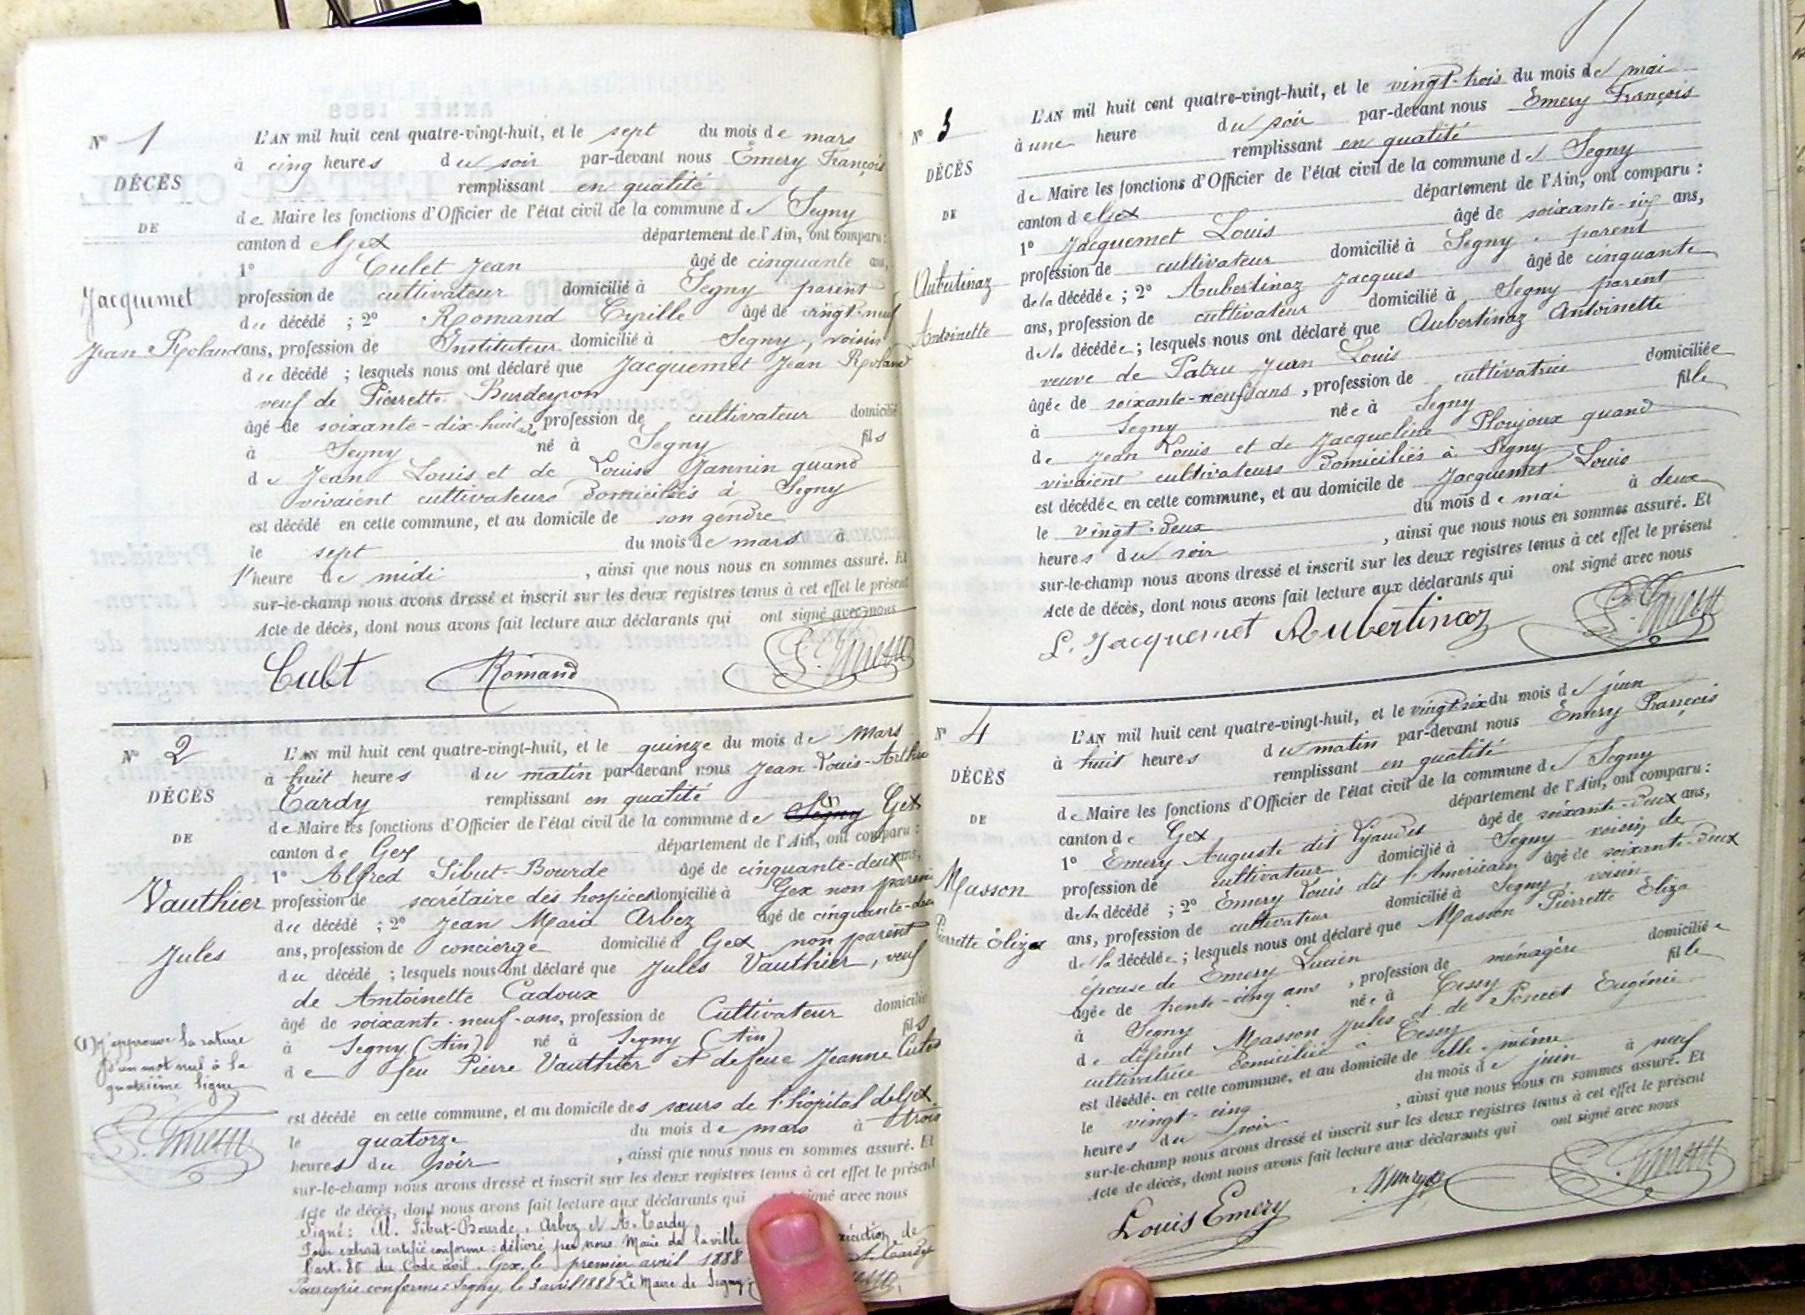 N° 1
DÉCÈS
DE
Jacquemet
Jean Roland
L'AN mil huit cent quatre-vingt-huit, et le sept du mois de mars
à cinq heures du soir par-devant nous Emery François
remplissant en qualité
de Maire les fonctions d'Officier de l'état civil de la commune de Segny
canton de Gex département de l'Ain, ont comparu :
1° Culet Jean âgé de cinquante ans,
profession de cultivateur domicilié à Segny parent
du décédé ; 2° Romand Cyrille âgé de vingt-neuf
ans, profession de Instituteur domicilié à Segny, voisin
du décédé ; lesquels nous ont déclaré que Jacquemet Jean Roland
veuf de Pierrette Burdeyron
âgé de soixante-dix-huit ans, profession de cultivateur domicilié
à Segny né à Segny fils
de Jean Louis et de Louise Jannin quand
vivaient cultivateurs domiciliés à Segny
est décédé en cette commune, et au domicile de son gendre
le sept du mois de mars à
1 heure de midi , ainsi que nous nous en sommes assuré. Et
sur-le-champ nous avons dressé et inscrit sur les deux registres tenus à cet effet le présent
Acte de décès, dont nous avons fait lecture aux déclarants qui ont signé avec nous
Culet Romand
N° 2
DÉCÈS
DE
Vauthier
Jules
L'AN mil huit cent quatre-vingt-huit, et le quinze du mois de Mars
à huit heures du matin par-devant nous Jean-Louis-Arthur
Tardy remplissant en qualité
de Maire les fonctions d'Officier de l'état civil de la commune de Segny (1) Gex
canton de Gex département de l'Ain, ont comparu :
1° Alfred Sibut-Bourde âgé de cinquante-deux ans,
profession de secrétaire des hospices domicilié à Gex non parent
du décédé ; 2° Jean Marie Arbez âgé de cinquante-deux
ans, profession de concierge domicilié à Gex non parent
du décédé ; lesquels nous ont déclaré que Jules Vauthier, veuf
de Antoinette Cadoux
âgé de soixante-neuf-ans, profession de Cultivateur domicilié
à Segny (Ain) né à Segny (Ain) fils
de feu Pierre Vauthier et de feue Jeanne Culet
est décédé en cette commune, et au domicile des sœurs de l'hôpital de Gex
le quatorze du mois de mars à trois
heures du soir , ainsi que nous nous en sommes assuré. Et
sur-le-champ nous avons dressé et inscrit sur les deux registres tenus à cet effet le présent
Acte de décès, dont nous avons fait lecture aux déclarants qui signé avec nous
Signé : Al. Sibut-Bourde, Arbez et A. Tardy
Pour extrait certifié conforme délivré par nous Maire de la ville exécution de
l'art. 80 du Code civil. Gex, le premier avril 1888 A. Tardy
Pour copie conforme : Segny, le 3 avril 1888 Le Maire de Segny
(1) J'approuve la rature
d'un mot nul à la
quatrième ligne
N° 3
DÉCÈS
DE
Aubertinaz
Antoinette
L'AN mil huit cent quatre-vingt-huit, et le vingt-trois du mois de mai
à une heure du soir par-devant nous Emery François
remplissant en qualité
de Maire les fonctions d'Officier de l'état civil de la commune de Segny
canton de Gex département de l'Ain, ont comparu :
1° Jacquemet Louis âgé de soixante-six ans,
profession de cultivateur domicilié à Segny parent
de la décédée ; 2° Aubertinaz Jacques âgé de cinquante
ans, profession de cultivateur domicilié à Segny parent
de la décédée ; lesquels nous ont déclaré que Aubertinaz Antoinette
veuve de Patru Jean Louis
âgée de soixante-neuf ans, profession de cultivatrice domiciliée
à Segny née à Segny fille
de Jean Louis et de Jacqueline Ploujoux quand
vivaient cultivateurs domiciliés à Segny
est décédée en cette commune, et au domicile de Jacquemet Louis
le vingt-deux du mois de mai à deux
heures du soir , ainsi que nous nous en sommes assuré. Et
sur-le-champ nous avons dressé et inscrit sur les deux registres tenus à cet effet le présent
Acte de décès, dont nous avons fait lecture aux déclarants qui ont signé avec nous
L. Jacquemet Aubertinaz
N° 4
DÉCÈS
DE
Masson
Pierrette Eliza
L'AN mil huit cent quatre-vingt-huit, et le vingt six du mois de juin
à huit heures du matin par-devant nous Emery François
remplissant en qualité
de Maire les fonctions d'Officier de l'état civil de la commune de Segny
canton de Gex département de l'Ain, ont comparu :
1° Emery Auguste dit âgé de soixante-deux ans,
profession de cultivateur domicilié à Segny voisin de
de la décédé ; 2° Emery Louis dit l'Américain âgé de soixante-deux
ans, profession de cultivateur domicilié à Segny, voisin
de la décédée ; lesquels nous ont déclaré que Masson Pierrette Eliza
épouse de Emery Lucien
âgée de trente-cinq ans , profession de ménagère domiciliée
à Segny née à Cessy fille
de défunt Masson Jules et de Poncet Eugénie
cultivatrice domiciliée à Cessy
est décédé en cette commune, et au domicile de elle-même
le vingt-cinq du mois de juin à neuf
heures du soir , ainsi que nous nous en sommes assuré. Et
sur-le-champ nous avons dressé et inscrit sur les deux registres tenus à cet effet le présent
Acte de décès, dont nous avons fait lecture aux déclarants qui ont signé avec nous
Louis Emery